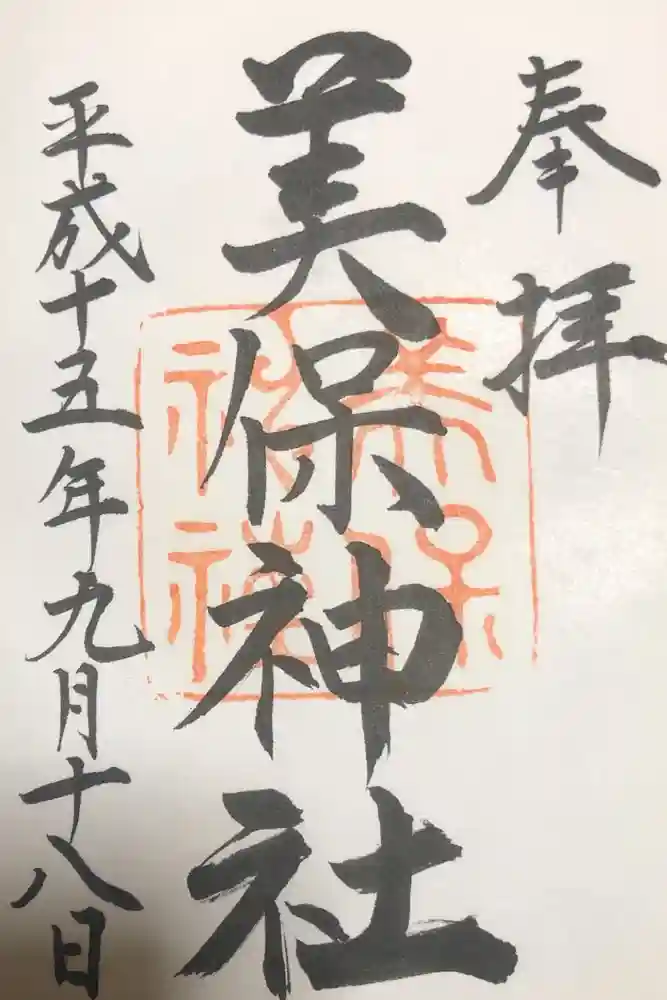 奉拝
美保神社
平成十五年九月十八日
美保
神社